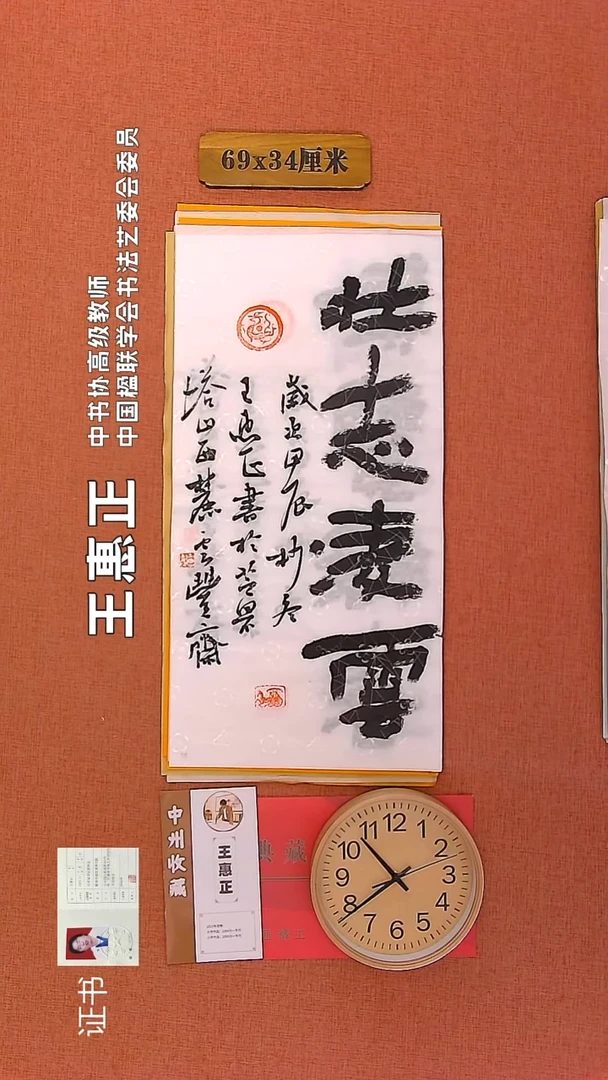 69x34厘米
中书协高级教师
中国楹联学会书法艺委会委员
王惠正
壮志凌雲
歲在甲辰杪冬
王惠正書於
塔山西麓雲豐齋
中州收藏
王惠正
典藏
12
1
2
3
4
5
6
7
8
9
10
11
证书